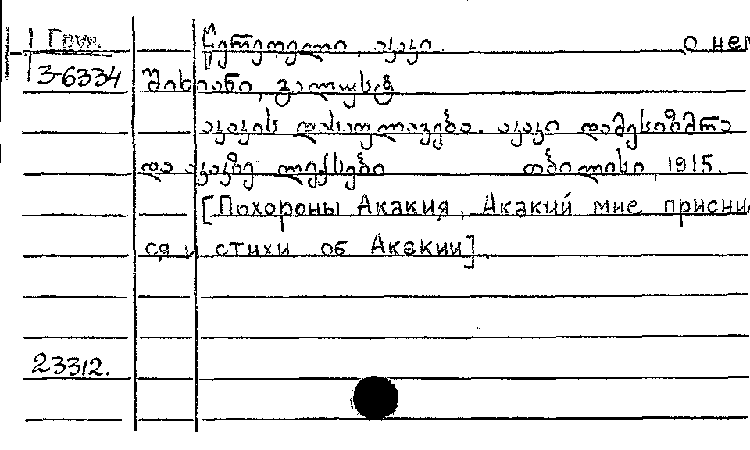 Груз. წერეთელი, აკაკი. о нем
3-6334 შიხიანი,
აკაკის დასაფლავება. აკაკი დამესიზმრა
და აკაკზე ლექსები თბილისი, 1915.
[Похороны Акакия, Акакий мне присни
ся и стихи об Акакии]
23312.